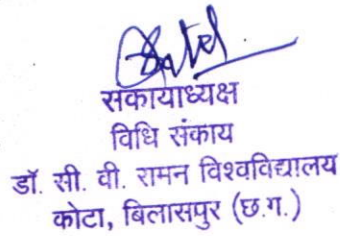 सकायाध्यक्ष
विधि संकाय
डॉ. सी. वी. रामन विश्वविद्यालय
कोटा, बिलासपुर (छ.ग.)